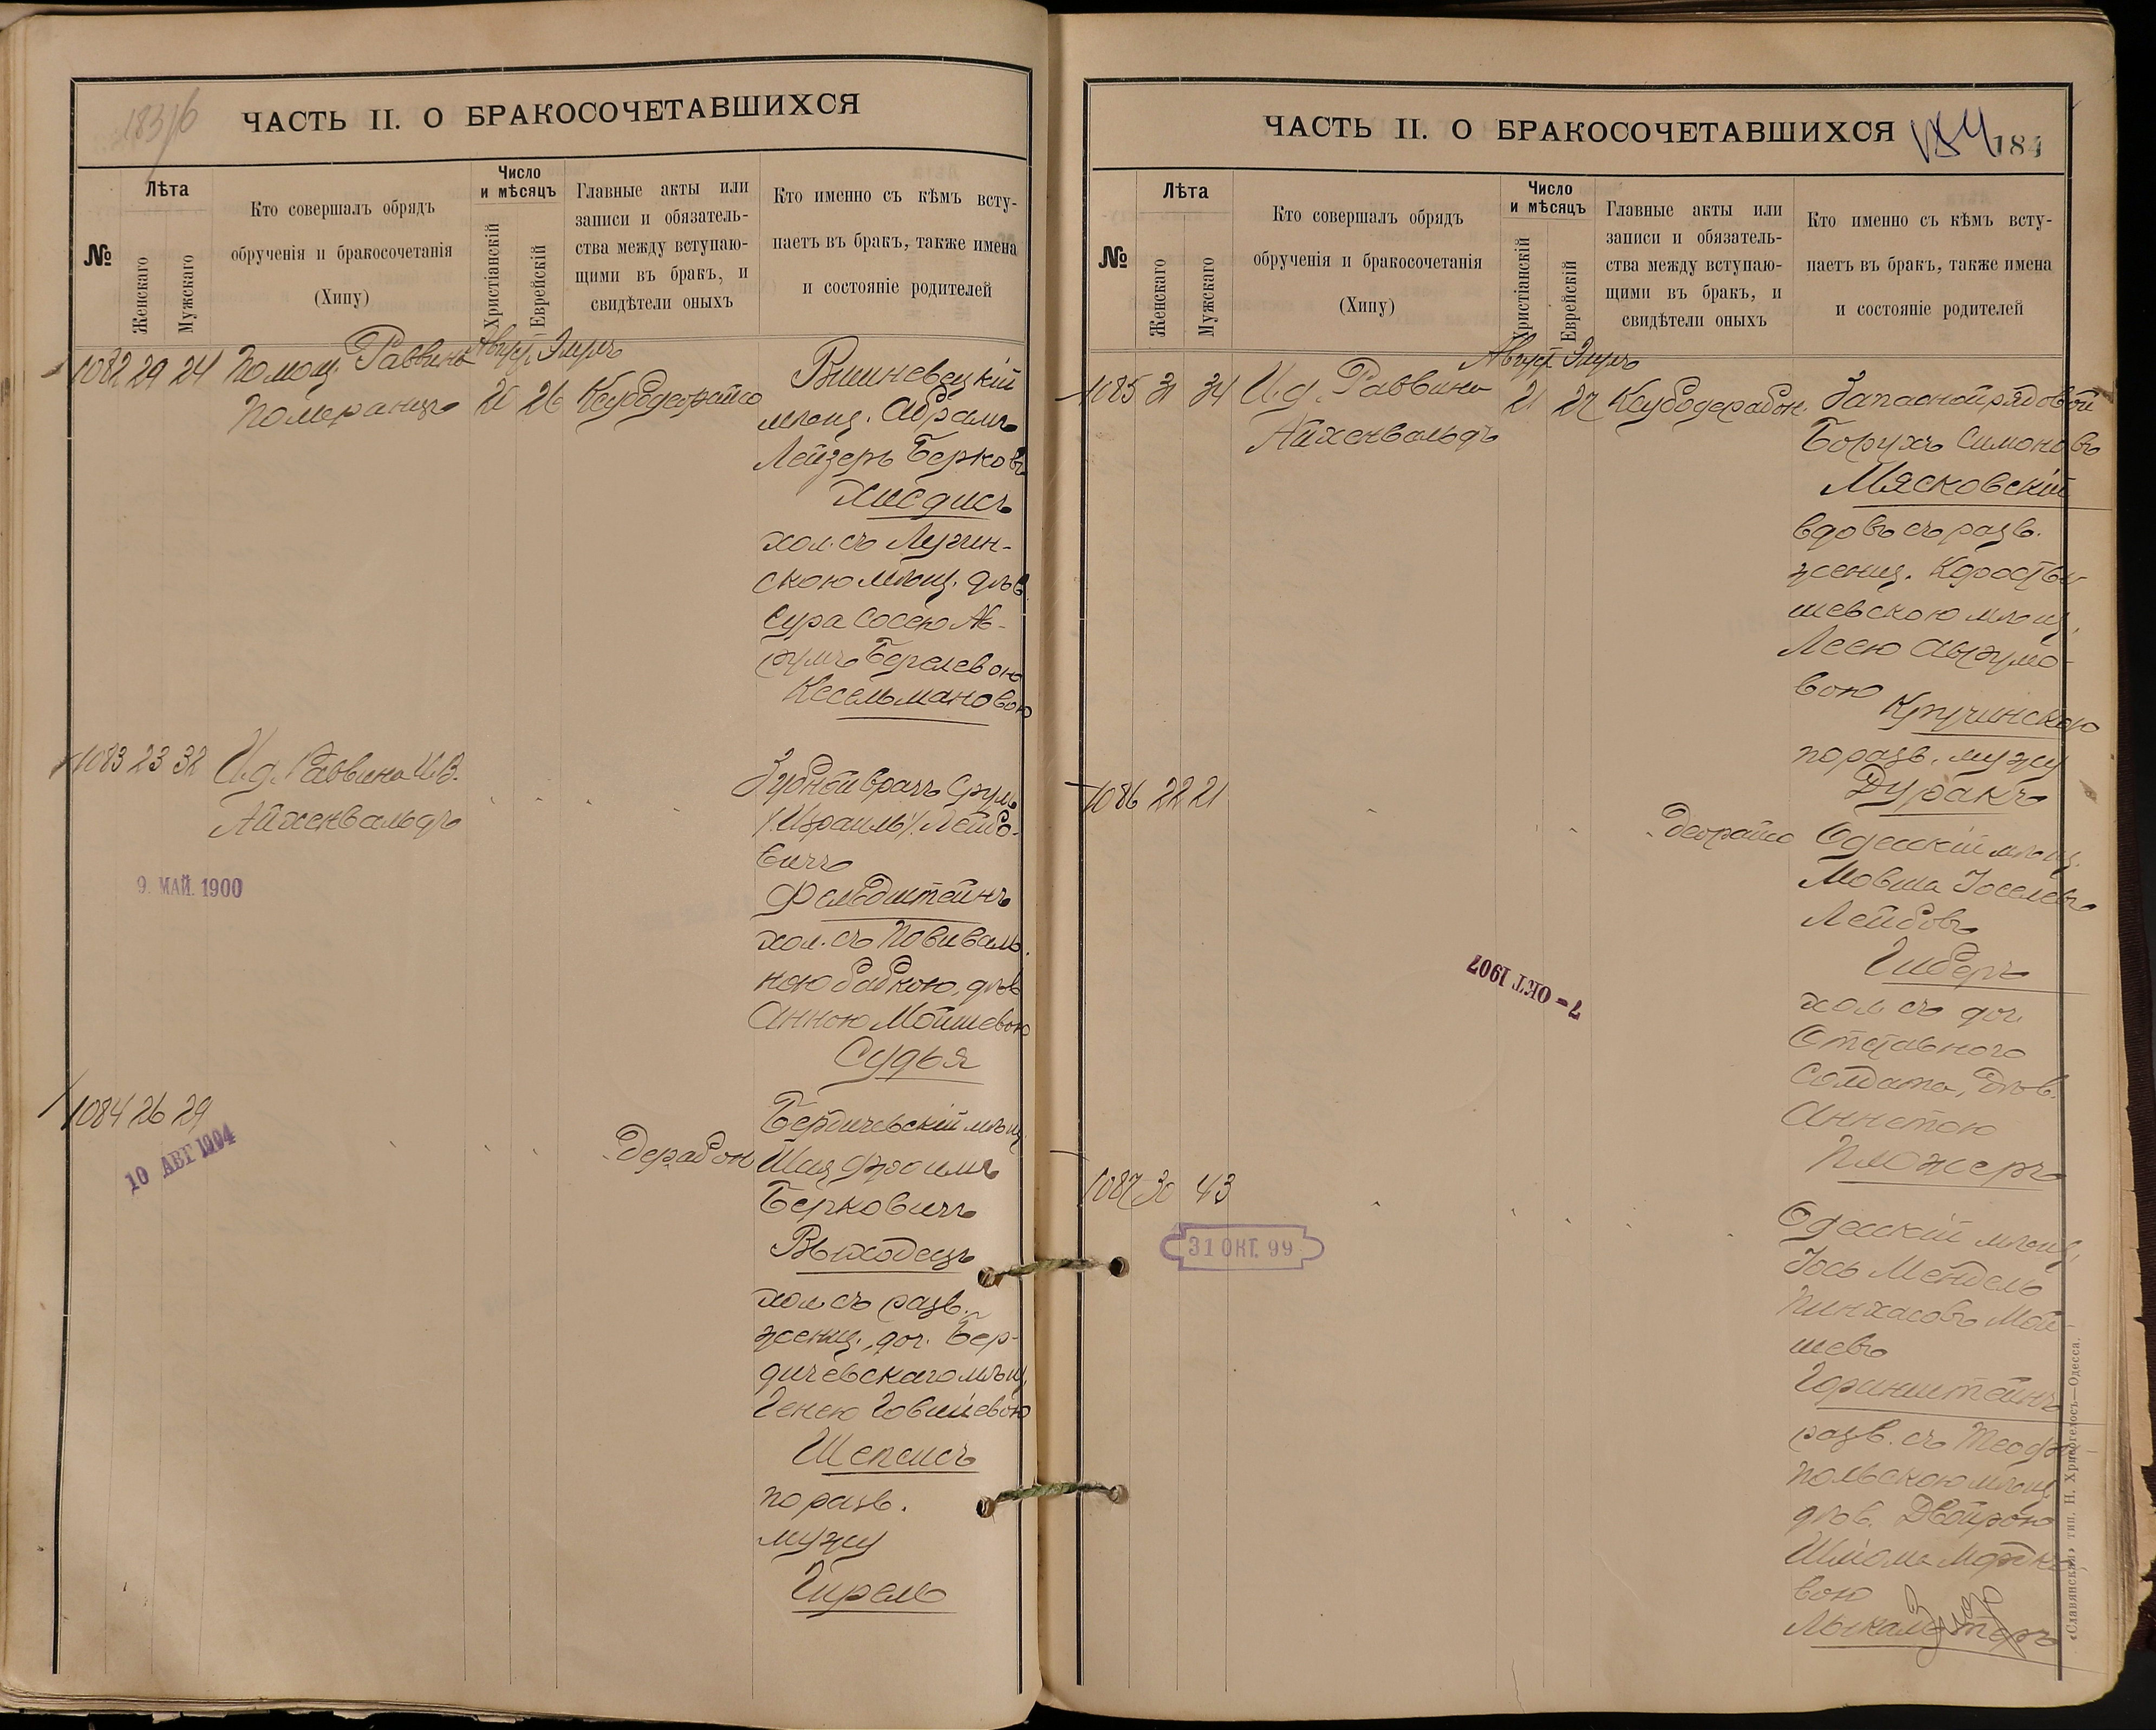 183/б
ЧАСТЬ II. О БРАКОСОЧЕТАВШИХСЯ
№
Лѣта
Женскаго
Мужскаго
Кто совершалъ обрядъ
обрученія и бракосочетанія
(Хипу)
Число
и мѣсяцъ
Христіанскій
Еврейскій
Главные акты или
записи и обязатель-
ства между вступаю-
щими въ бракъ, и
свидѣтели оныхъ
Кто именно съ кѣмъ всту-
паетъ въ бракъ, также имена
и состояніе родителей
1082 29 24 Помощ. Раввина
Померанцъ
Август. Элулъ
20 26
Вишневецкій
мѣщ. Абрамъ
Лейзеръ Берковъ
Хисдисъ
хол. съ Лугин-
скою мѣщ. дѣв.
Сура Сосею Ав-
румъ Берелевою
Кесельмановою
1083 23 32 И.д. Раввина И.В.
Айхенвальдъ
9. МАЙ. 1900
Зубной врачъ Сруль
/Израиль/ Лейбо-
вичъ
Фельдштейнъ
хол. съ Повиваль-
ною бабкою, дѣв.
Анною Мойшевою
Судья
1084 26 29
10 АВГ 1904
Дерабон
Бердичевскій мѣщ.
Шая Фроимъ
Берковичъ
Выходецъ
хол. съ разв.
женщ., доч. Бер-
дичевскаго мѣщ.
Генею Говшіевою
Шепсисъ
по разв.
мужу
Гирель
ЧАСТЬ II. О БРАКОСОЧЕТАВШИХСЯ
184
184
№
Лѣта
Женскаго
Мужскаго
Кто совершалъ обрядъ
обрученія и бракосочетанія
(Хипу)
Число
и мѣсяцъ
Христіанскій
Еврейскій
Главные акты или
записи и обязатель-
ства между вступаю-
щими въ бракъ, и
свидѣтели оныхъ
Кто именно съ кѣмъ всту-
паетъ въ бракъ, также имена
и состояніе родителей
1085 31 34 И.д. Раввина
Айхенвальдъ
Август. Элулъ
21 27 Ксубодерабон.
Запасной рядовой
Борухъ Симоновъ
Мясковскій
вдовъ съ разв.
женщ. Коросты-
шевскою мѣщ.
Леею Аврумо-
вою
Кручинскою
по разв. мужу
Дуракъ
1086 22 21
Деорайсо
Одесскій мѣщ.
Мовша Іоселевъ
Лейбовъ
Гиберъ
хол. съ доч.
Отставного
солдата, дѣв.
Аннетою
Пложеръ
7 = ОКТ 1907
1087 30 43
31 ОКТ. 99
Одесскій мѣщ.
Іось Мендель
Пинхасовъ Мой-
шевъ
Горинштейнъ
разв. съ Теофи-
польскою мѣщ.
дѣв. Двойрою
Шлiома Мордко-
вою
«Славянская» тип. Н. Хрисогелосъ—Одесса.